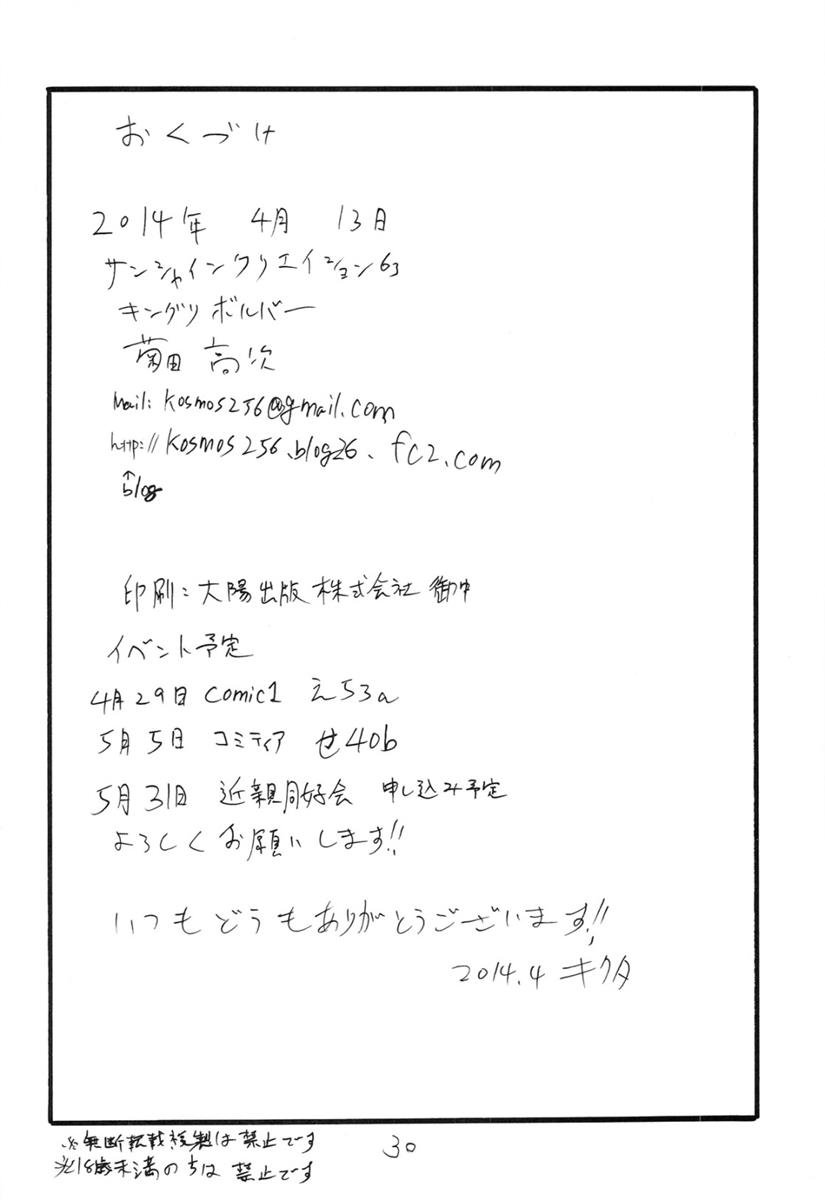 おくづけ
2014年 4月 13日
サンシャインクリエイション63
キングリボルバー
菊田 高次
Mail: kosmos256@gmail.com
http://kosmos256.blog26.fc2.com
↑
blog
印刷: 大陽出版株式会社 御中
イベント予定
4月29日 comic1 え53a
5月5日 コミティア せ40b
5月31日 近親同好会 申し込み予定
よろしくお願いします!!
いつもどうもありがとうございます!!
2014.4 キクタ
※無断転載複製は禁止です
30
※18歳未満の は 禁止です